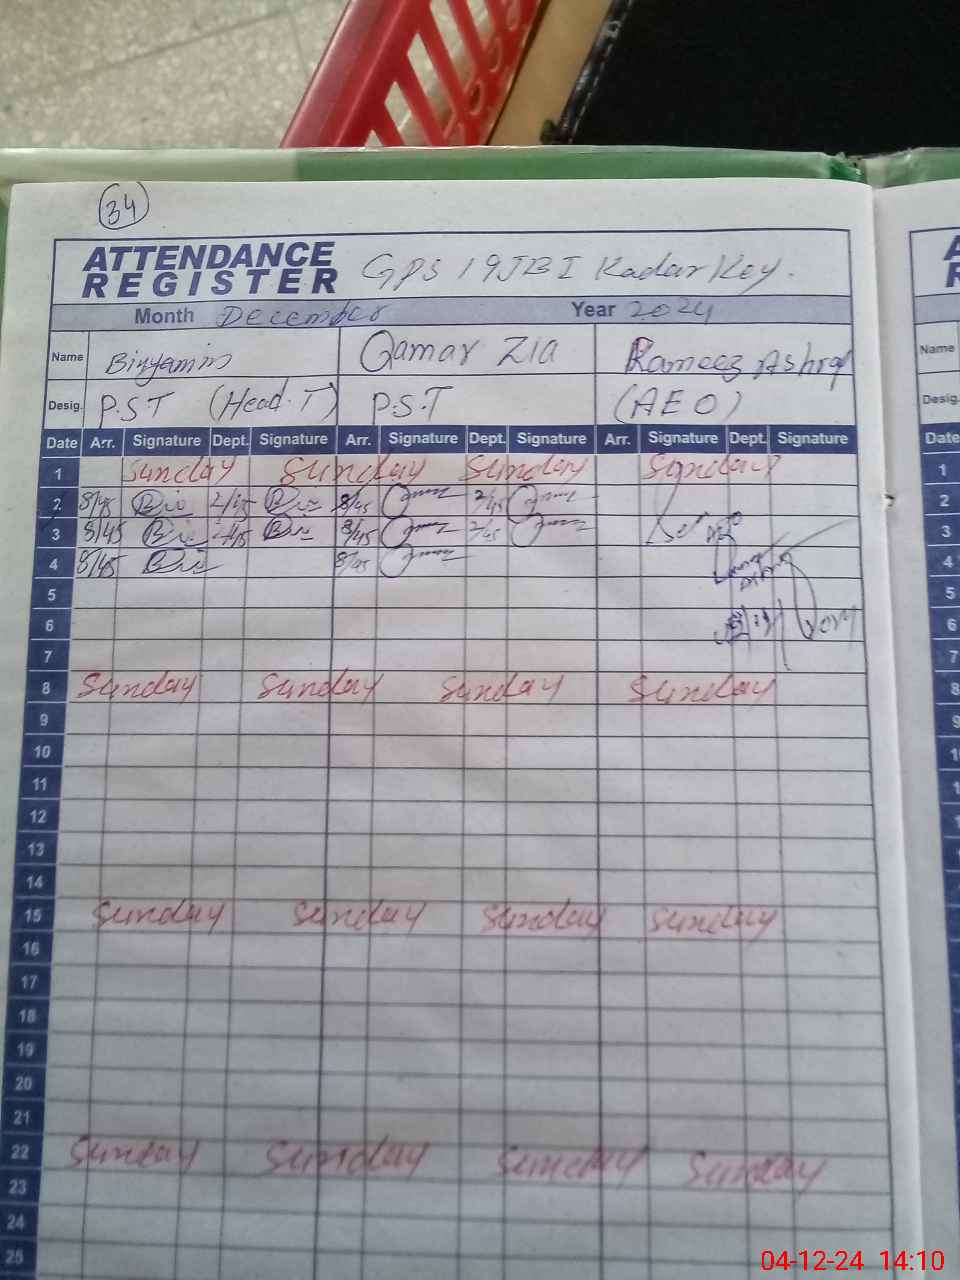 34
ATTENDANCE
REGISTER GPS 19JBI Kadar Key.
Month December Year 2024
Name Binyamin Qamar Zia Rameez Ashraf Name
Desig. P.S.T (Head.T) P.S.T (AEO) Desig.
Date Arr. Signature Dept. Signature Arr. Signature Dept. Signature Arr. Signature Dept. Signature Date
1 Sunday Sunday Sunday Sunday 1
2 8/45 2/45 8/45 2/45 2
3 8/45 2/45 8/45 2/45 3
4 8/45 8/45 4
5 5
6 6
7 7
8 Sunday Sunday Sunday Sunday 8
9
10
11
12
13
14
15 Sunday Sunday Sunday Sunday
16
17
18
19
20
21
22 Sunday Sunday Sunday Sunday
23
24
25
04-12-24 14:10